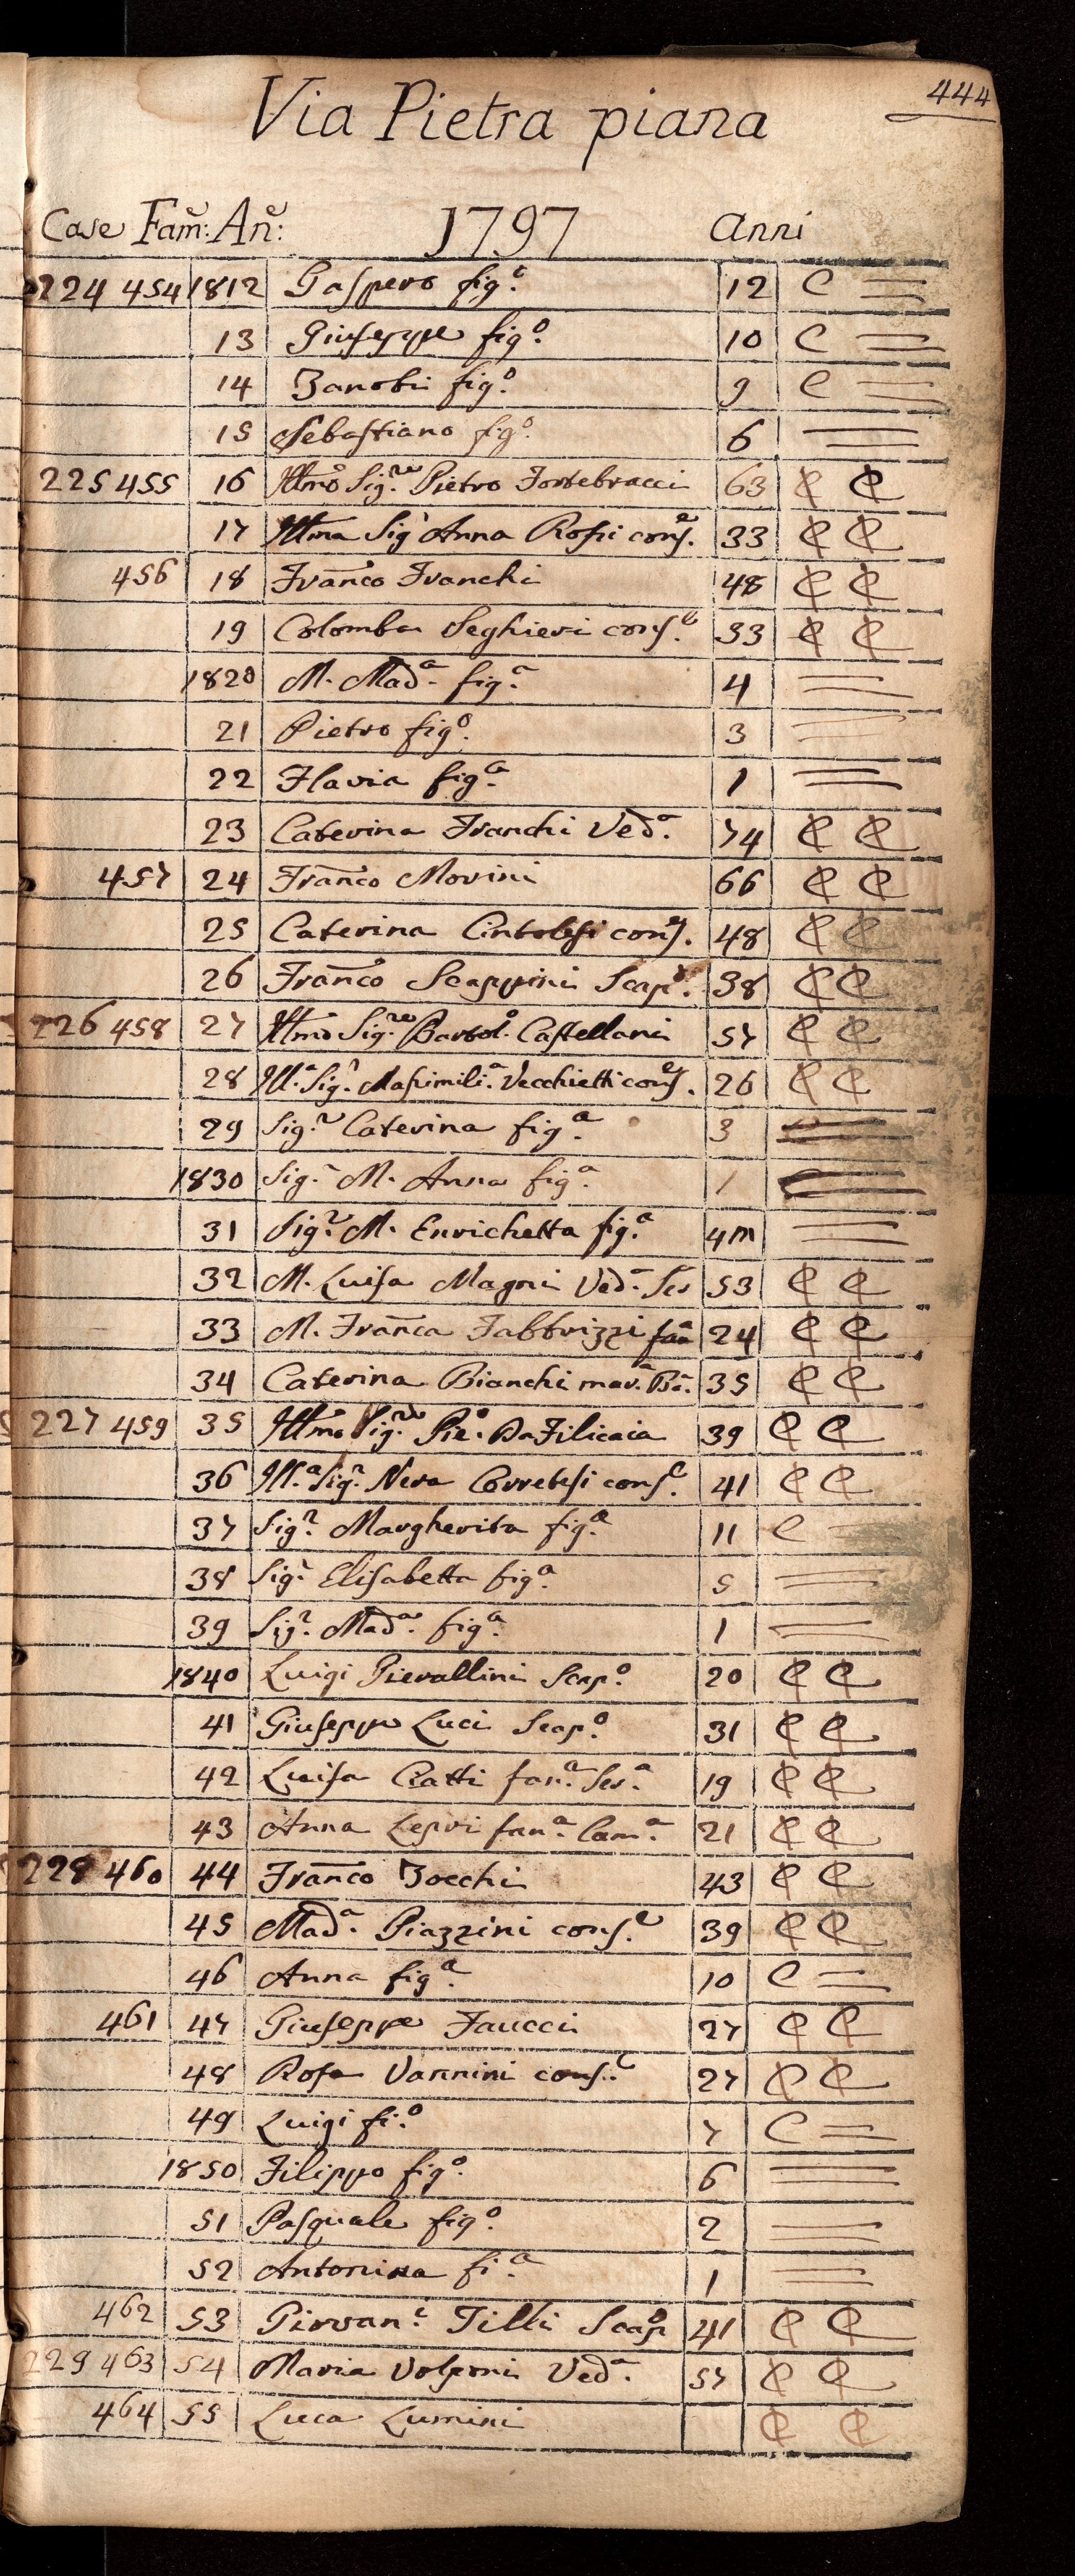 444
Via Pietra piana
Case Fam: An: 1797 Anni
224 454 1812 Gaspero fig.o 12 C =
13 Giuseppe fig.o 10 C =
14 Zanobi fig.o 9 C =
15 Sebastiano fig.o 6 =
225 455 16 Illmo Sig.re Pietro Fortebracci 63 C C
17 Illma Sig Anna Rossi cons.e 33 C C
456 18 Franco Franchi 48 C C
19 Colomba Seghieri cons.e 33 C C
1820 M. Mad.a fig.a 4 =
21 Pietro fig.o 3 =
22 Flavia fig.a 1 =
23 Caterina Franchi Ved.a 74 C C
457 24 Franco Morini 66 C C
25 Caterina Cintolesi cons.e 48 C C
26 Franco Scappini Scap.o 38 C C
226 458 27 Illmo Sig.re Bartol.o Castellani 57 C C
28 Ill.a Sig.a Massimili.a Vecchietti cons.e 26 C C
29 Sig.a Caterina fig.a 3 =
1830 Sig.a M. Anna fig.a 1 =
31 Sig.a M. Enrichetta fig.a 4m =
32 M. Luisa Magni Ved.a Ser 53 C C
33 M. Franca Fabbrizzi fan 24 C C
34 Caterina Bianchi mar. Ba. 35 C C
227 459 35 Illmo Sig.re Pie.o Da Filicaia 39 C C
36 Ill.a Sig.a Nera Corretesi cons.e 41 C C
37 Sig.a Margherita fig.a 11 C -
38 Sig.a Elisabetta fig.a 5 =
39 Sig.a Mad.a fig.a 1 =
1840 Luigi Pierallini Scap.o 20 C C
41 Giuseppe Luci Scap.o 31 C C
42 Luisa Ciatti fan.a Ser.a 19 C C
43 Anna Lepri fan.a Cam.a 21 C C
228 460 44 Franco Zocchi 43 C C
45 Mad.a Piazzini cons.e 39 C C
46 Anna fig.a 10 C =
461 47 Giuseppe Faucci 27 C C
48 Rosa Vannini cons.e 27 C C
49 Luigi fi.o 7 C =
1850 Filippo fig.o 6 =
51 Pasquale fig.o 2 =
52 Antonina fi.a 1 =
462 53 Giovan.i Tilli Scap 41 C C
229 463 54 Maria Volponi Ved.a 57 C C
464 55 Luca Lumini C C